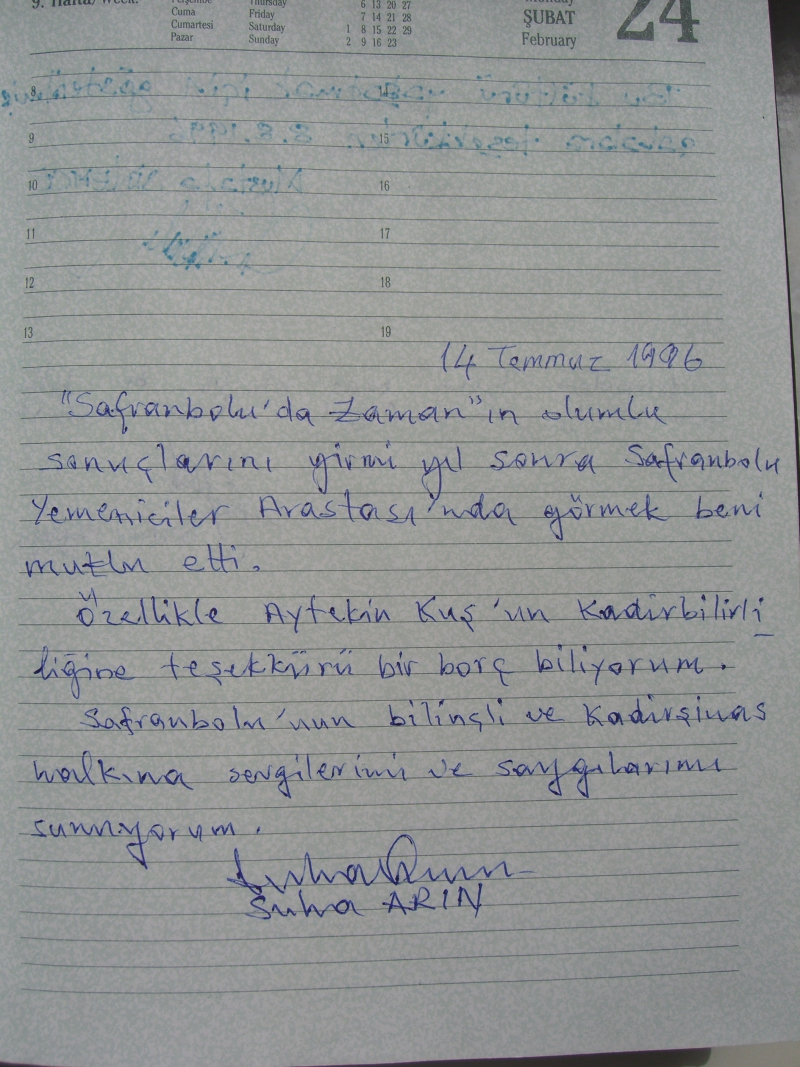 9. Hafta/Week:
Perşembe Thursday 6 13 20 27
Cuma Friday 7 14 21 28
Cumartesi Saturday 1 8 15 22 29
Pazar Sunday 2 9 16 23
Monday
ŞUBAT
February
24
8
Bu kültürü yaşatmak için gösterilen
9 15
çabalara teşekkürler 8.8.1996
10 16
Mustafa
11 17
12 18
13 19
14 Temmuz 1996
"Safranbolu'da Zaman"ın olumlu
sonuçlarını yirmi yıl sonra Safranbolu
Yemeniciler Arastası'nda görmek beni
mutlu etti.
Özellikle Aytekin Kuş'un Kadirbilirli
liğine teşekkürü bir borç biliyorum.
Safranbolu'nun bilinçli ve Kadirşinas
halkına sevgilerimi ve saygılarımı
sunuyorum.
Suha ARIN